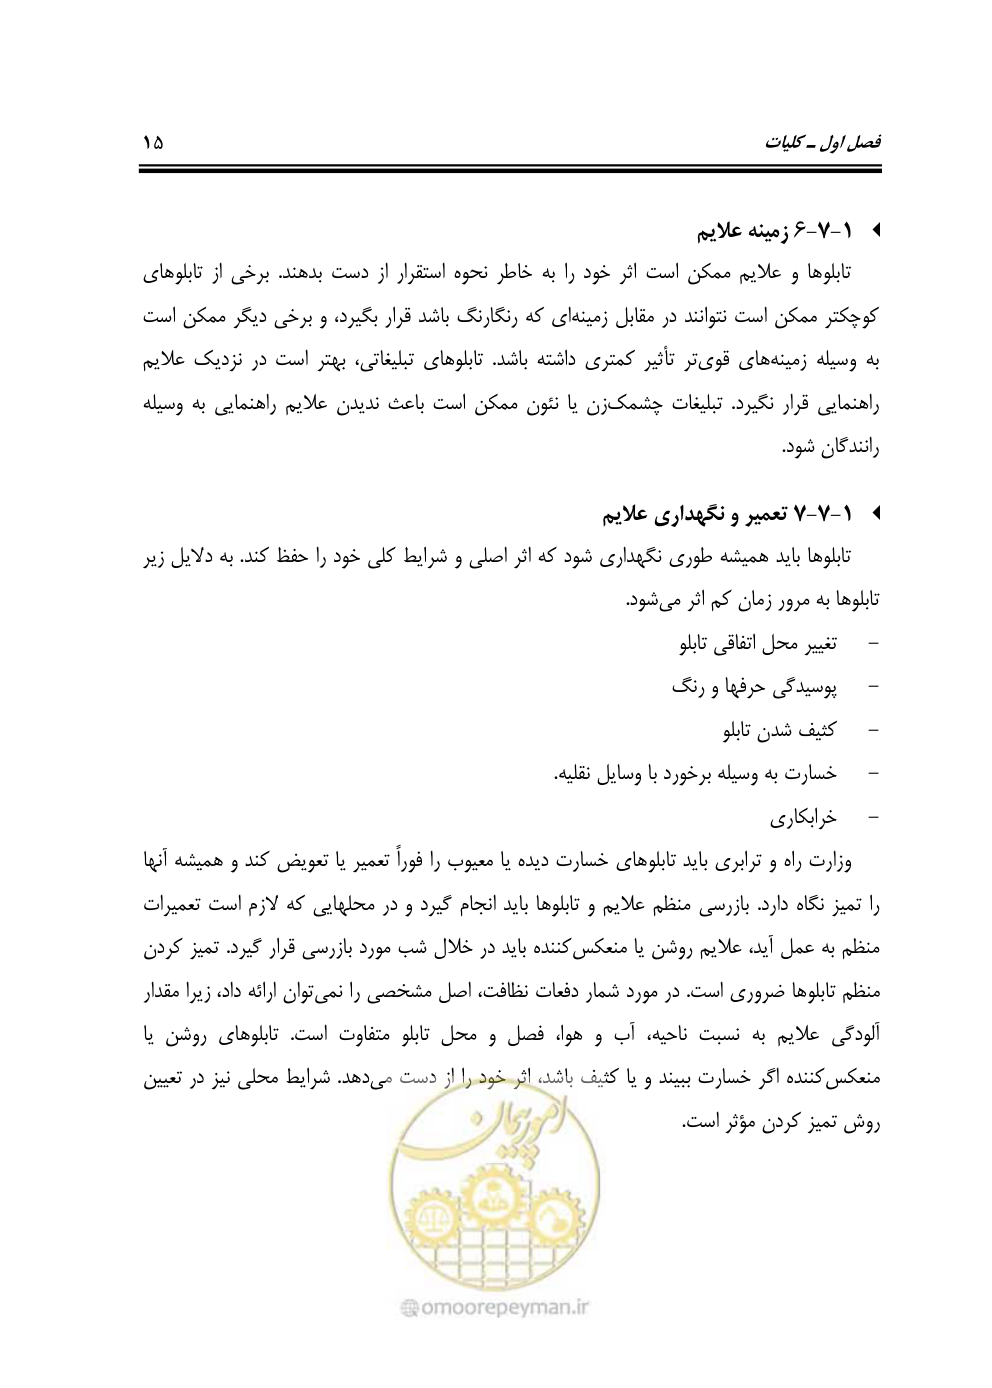 فصل اول ـ کلیات ۱۵
۱-۷-۶ زمینه علایم
تابلوها و علایم ممکن است اثر خود را به خاطر نحوه استقرار از دست بدهند. برخی از تابلوهای
کوچکتر ممکن است نتوانند در مقابل زمینه‌ای که رنگارنگ باشد قرار بگیرد، و برخی دیگر ممکن است
به وسیله زمینه‌های قوی‌تر تأثیر کمتری داشته باشد. تابلوهای تبلیغاتی، بهتر است در نزدیک علایم
راهنمایی قرار نگیرد. تبلیغات چشمک‌زن یا نئون ممکن است باعث ندیدن علایم راهنمایی به وسیله
رانندگان شود.
۱-۷-۷ تعمیر و نگهداری علایم
تابلوها باید همیشه طوری نگهداری شود که اثر اصلی و شرایط کلی خود را حفظ کند. به دلایل زیر
تابلوها به مرور زمان کم اثر می‌شود.
- تغییر محل اتفاقی تابلو
- پوسیدگی حرفها و رنگ
- کثیف شدن تابلو
- خسارت به وسیله برخورد با وسایل نقلیه.
- خرابکاری
وزارت راه و ترابری باید تابلوهای خسارت دیده یا معیوب را فوراً تعمیر یا تعویض کند و همیشه آنها
را تمیز نگاه دارد. بازرسی منظم علایم و تابلوها باید انجام گیرد و در محلهایی که لازم است تعمیرات
منظم به عمل آید، علایم روشن یا منعکس‌کننده باید در خلال شب مورد بازرسی قرار گیرد. تمیز کردن
منظم تابلوها ضروری است. در مورد شمار دفعات نظافت، اصل مشخصی را نمی‌توان ارائه داد، زیرا مقدار
آلودگی علایم به نسبت ناحیه، آب و هوا، فصل و محل تابلو متفاوت است. تابلوهای روشن یا
منعکس‌کننده اگر خسارت ببیند و یا کثیف باشد، اثر خود را از دست می‌دهد. شرایط محلی نیز در تعیین
روش تمیز کردن مؤثر است.
امور پیمان
@omoorepeyman.ir